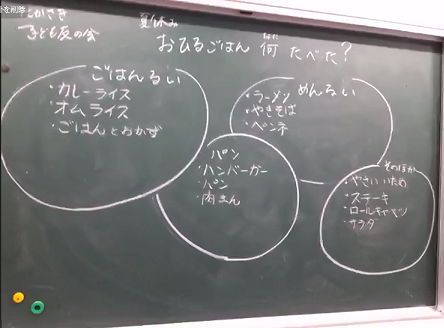 を削除
こかさき
子ども友の会
夏休み
おひるごはん 何 たべた?
なに
ごはんるい
・カレーライス
・オムライス
・ごはんとおかず
めんるい
・ラーメン
・やきそば
・ペンネ
パン
・ハンバーガー
・パン
・肉まん
そのほか
・やさいいため
・ステーキ
・ロールキャベツ
・サラダ